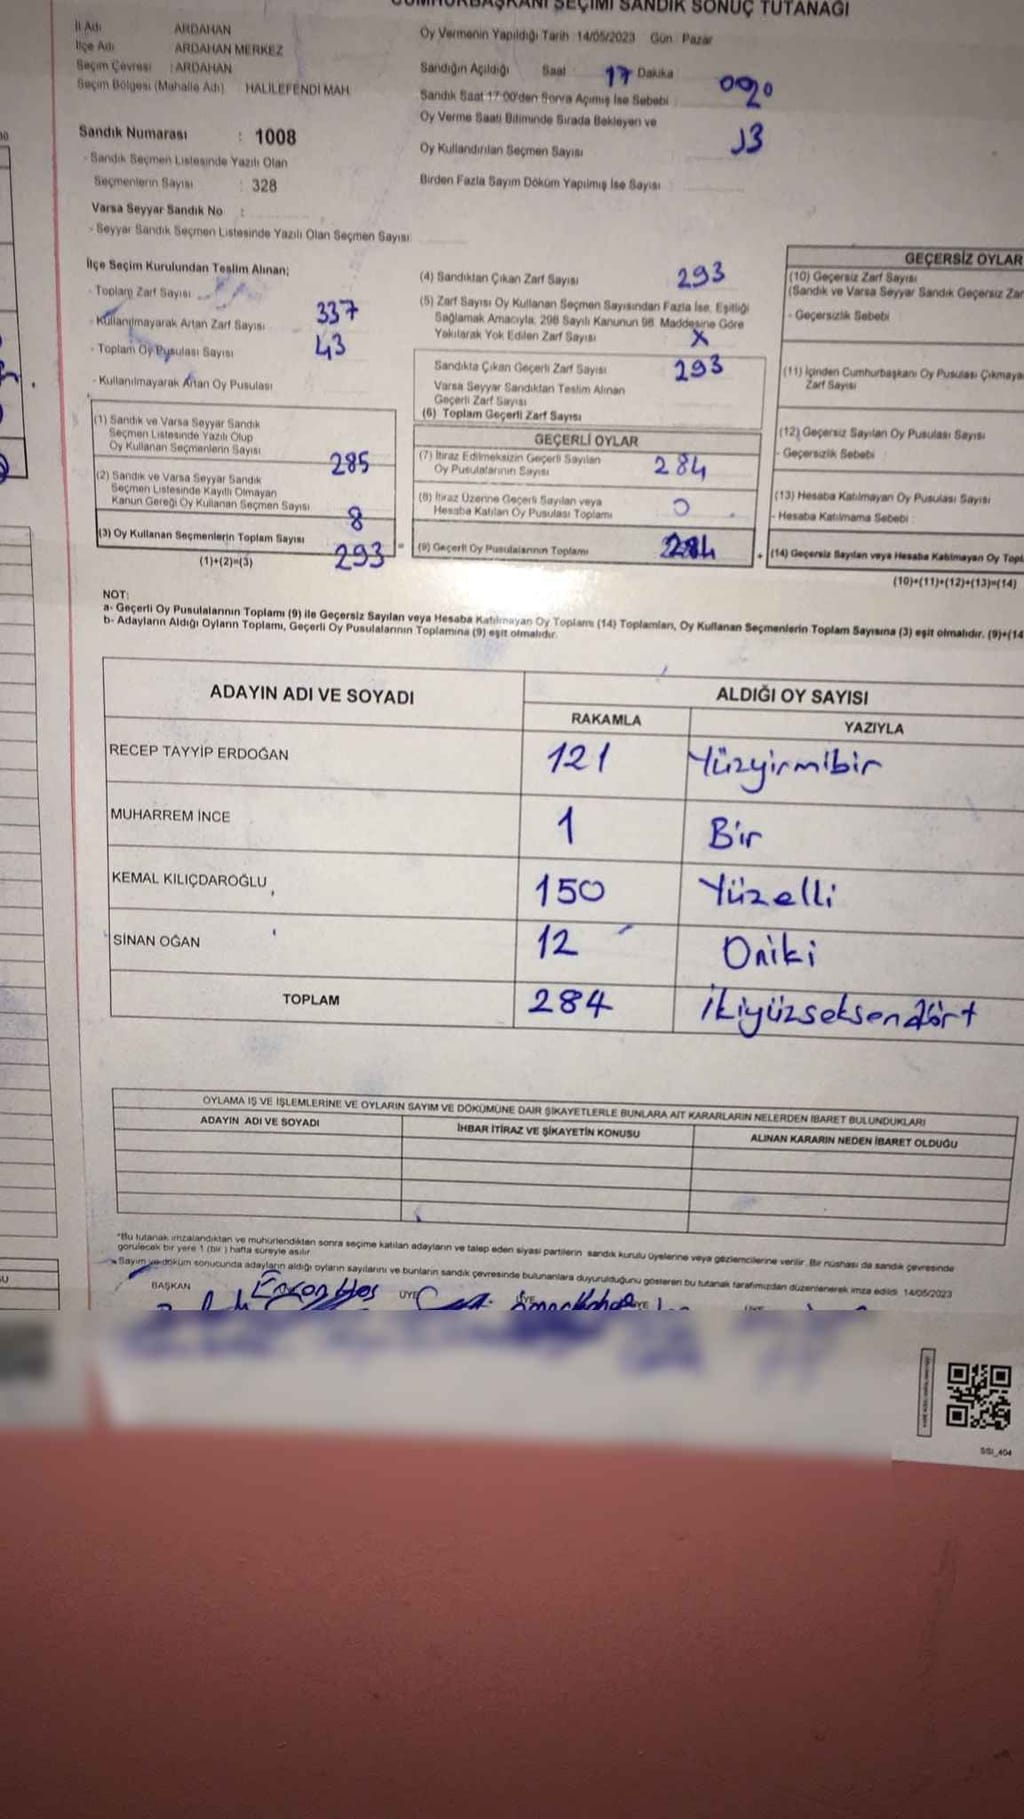 CUMHURBAŞKANI SEÇİMİ SANDIK SONUÇ TUTANAĞI
İl Adı ARDAHAN
İlçe Adı ARDAHAN MERKEZ
Seçim Çevresi : ARDAHAN
Seçim Bölgesi (Mahalle Adı) HALİLEFENDİ MAH
Oy Vermenin Yapıldığı Tarih :14/05/2023 Gün : Pazar
Sandığın Açıldığı Saat 17 Dakika
Sandık Saat 17:00'den Sonra Açımış İse Sebebi
Oy Verme Saati Bitiminde Sırada Bekleyen ve
Oy Kullandırılan Seçmen Sayısı 13
Birden Fazla Sayım Döküm Yapılmış İse Sayısı
Sandık Numarası : 1008
- Sandık Seçmen Listesinde Yazılı Olan
Seçmenlerin Sayısı : 328
Varsa Seyyar Sandık No :
- Seyyar Sandık Seçmen Listesinde Yazılı Olan Seçmen Sayısı:
İlçe Seçim Kurulundan Teslim Alınan;
- Toplam Zarf Sayısı
- Kullanılmayarak Artan Zarf Sayısı 337
- Toplam Oy Pusulası Sayısı 43
- Kullanılmayarak Artan Oy Pusulası
(1) Sandık ve Varsa Seyyar Sandık
Seçmen Listesinde Yazılı Olup
Oy Kullanan Seçmenlerin Sayısı 285
(2) Sandık ve Varsa Seyyar Sandık
Seçmen Listesinde Kayıtlı Olmayan
Kanun Gereği Oy Kullanan Seçmen Sayısı 8
(3) Oy Kullanan Seçmenlerin Toplam Sayısı 293
(1)+(2)=(3)
(4) Sandıktan Çıkan Zarf Sayısı 293
(5) Zarf Sayısı Oy Kullanan Seçmen Sayısından Fazla İse, Eşitliği
Sağlamak Amacıyla, 298 Sayılı Kanunun 98. Maddesine Göre
Yakılarak Yok Edilen Zarf Sayısı X
Sandıkta Çıkan Geçerli Zarf Sayısı 293
Varsa Seyyar Sandıktan Teslim Alınan
Geçerli Zarf Sayısı
(6) Toplam Geçerli Zarf Sayısı
GEÇERLİ OYLAR
(7) İtiraz Edilmeksizin Geçerli Sayılan
Oy Pusulalarının Sayısı 284
(8) İtiraz Üzerine Geçerli Sayılan veya
Hesaba Katılan Oy Pusulası Toplamı 0
(9) Geçerli Oy Pusulalarının Toplamı 284
GEÇERSİZ OYLAR
(10) Geçersiz Zarf Sayısı
(Sandık ve Varsa Seyyar Sandık Geçersiz Zar
- Geçersizlik Sebebi :
(11) İçinden Cumhurbaşkanı Oy Pusulası Çıkmaya
Zarf Sayısı
(12) Geçersiz Sayılan Oy Pusulası Sayısı
- Geçersizlik Sebebi :
(13) Hesaba Katılmayan Oy Pusulası Sayısı
- Hesaba Katılmama Sebebi :
(14) Geçersiz Sayılan veya Hesaba Katılmayan Oy Topl
(10)+(11)+(12)+(13)=(14)
NOT:
a- Geçerli Oy Pusulalarının Toplamı (9) ile Geçersiz Sayılan veya Hesaba Katılmayan Oy Toplamı (14) Toplamları, Oy Kullanan Seçmenlerin Toplam Sayısına (3) eşit olmalıdır. (9)+(14
b- Adayların Aldığı Oyların Toplamı, Geçerli Oy Pusulalarının Toplamına (9) eşit olmalıdır.
ADAYIN ADI VE SOYADI ALDIĞI OY SAYISI
RAKAMLA YAZIYLA
RECEP TAYYİP ERDOĞAN 121 Yüzyirmibir
MUHARREM İNCE 1 Bir
KEMAL KILIÇDAROĞLU 150 Yüzelli
SİNAN OĞAN 12 Oniki
TOPLAM 284 ikiyüzseksendört
OYLAMA İŞ VE İŞLEMLERİNE VE OYLARIN SAYIM VE DÖKÜMÜNE DAİR ŞİKAYETLERLE BUNLARA AİT KARARLARIN NELERDEN İBARET BULUNDUKLARI
ADAYIN ADI VE SOYADI İHBAR İTİRAZ VE ŞİKAYETİN KONUSU ALINAN KARARIN NEDEN İBARET OLDUĞU
*Bu tutanak imzalandıktan ve mühürlendikten sonra seçime katılan adayların ve talep eden siyasi partilerin sandık kurulu üyelerine veya gözlemcilerine verilir. Bir nüshası da sandık çevresinde
görülecek bir yere 1 (bir) hafta süreyle asılır.
Sayım ve döküm sonucunda adayların aldığı oyların sayılarını ve bunların sandık çevresinde bulunanlara duyurulduğunu gösteren bu tutanak tarafımızdan düzenlenerek imza edildi. 14/05/2023
BAŞKAN ÜYE ÜYE ÜYE
SSI_404